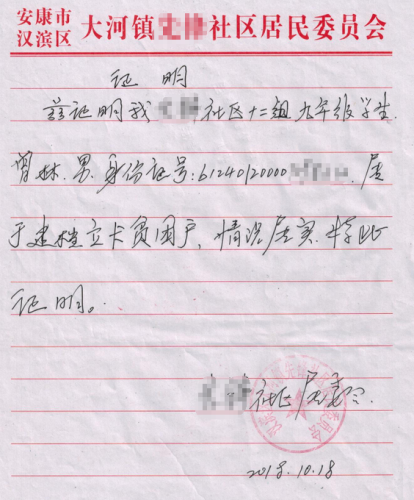 安康市
汉滨区 大河镇 社区居民委员会
证 明
兹证明我 社区十二组九年级学生
曾林.男.身份证号:61240120000 .属
于建档立卡贫困户,情况属实.特此
证明。
社区居委会.
2018.10.18